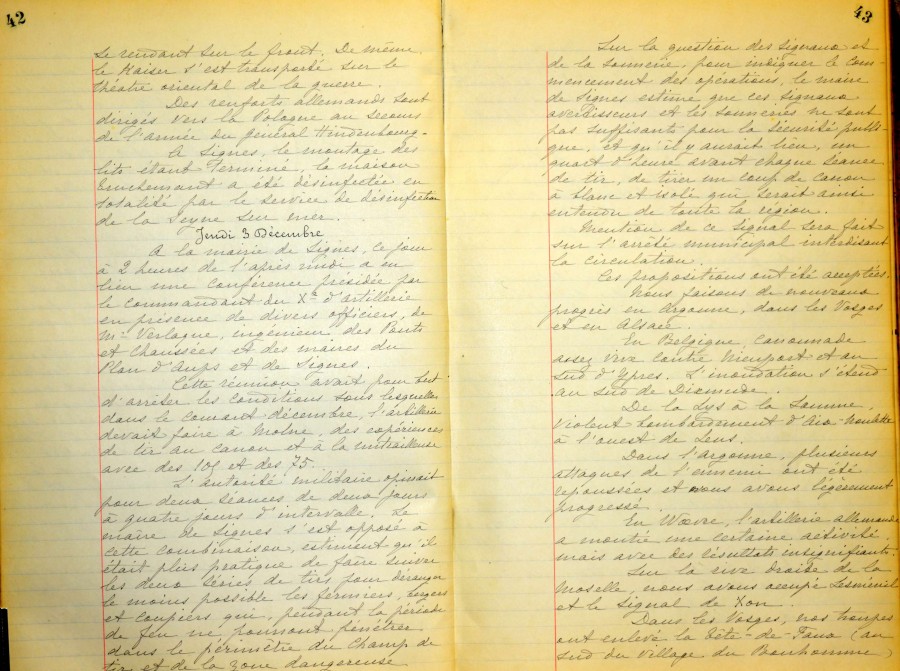 42
se rendant sur le front. De même
le Kaiser s'est transporté sur le
théâtre oriental de la guerre.
Des renforts allemands sont
dirigés vers la Pologne au secours
de l'armée du général Hindenbourg.
A Signes, le montage des
lits étant terminé, la maison
a été désinfectée en
totalité par le service de désinfection
de la Seyne sur mer.
Jeudi 3 Décembre
A la mairie de Signes, ce jour
à 2 heures de l'après midi a eu
lieu une conférence présidée par
le commandant du Xe d'artillerie
en présence de divers officiers, de
Mr Verlaque, ingénieur des Ponts
et Chaussées et des maires du
Plan d'Aups et de Signes.
Cette réunion avait pour but
d'arrêter les conditions sous lesquelles
dans le courant décembre, l'artillerie
devait faire à Molne, des expériences
de tir au canon et à la mitrailleuse
avec des 105 et des 75.
L'autorité militaire opinait
pour deux séances de deux jours
à quatre jours d'intervalle. Le
maire de Signes s'est opposé à
cette combinaison, estimant qu'il
était plus pratique de faire suivre
les deux séries de tirs pour déranger
le moins possible les fermiers, bergers
et coupiers qui, pendant la période
de feu ne pourront pénétrer
dans le périmètre du Champ de
tir et de la zone dangereuse
43
Sur la question des signaux et
de la sonnerie, pour indiquer le com-
mencement des opérations, le maire
de Signes estime que ces signaux
avertisseurs et les sonneries ne sont
pas suffisants pour la sécurité publi-
que, et qu'il y aurait lieu, un
quart d'heure avant chaque séance
de tir, de tirer un coup de canon
à blanc et isolé qui serait ainsi
entendu de toute la région.
Mention de ce signal sera fait
sur l'arrêté municipal interdisant
la circulation.
Ces propositions ont été acceptées.
Nous faisons de nouveaux
progrès en Argonne, dans les Vosges
et en Alsace.
En Belgique, canonnade
assez vive contre Nieuport et au
sud d'Ypres. L'inondation s'étend
au sud de Dixmude.
De la Lys à la Somme,
violent bombardement d'Aix-Noulette
à l'ouest de Lens.
Dans l'Argonne, plusieurs
attaques de l'ennemi ont été
repoussées et nous avons légèrement
progressé.
En Woëvre, l'artillerie allemande
a montré une certaine activité,
mais avec des résultats insignifiants.
Sur la rive droite de la
Moselle, nous avons occupé Lesménil
et le Signal de Xon.
Dans les Vosges, nos troupes
ont enlevé la Tête-de-Faux (au
sud du village du Bonhomme)